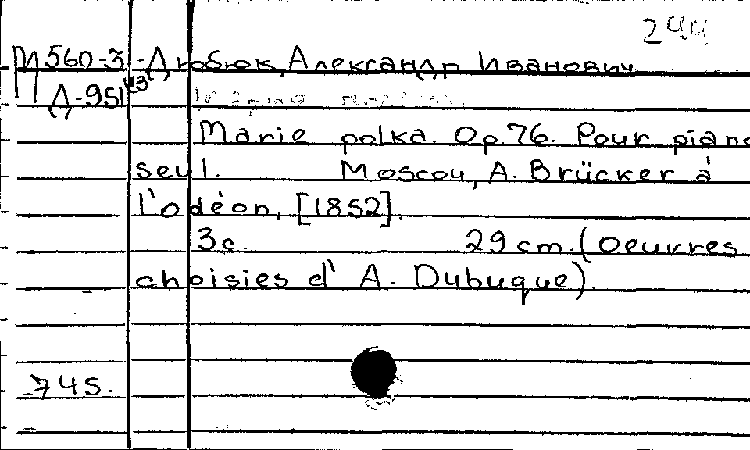 244
П560-3 Дюбюк, Александр Иванович
Д-951
Marie polka. Op.76. Pour piano
seul. Moscou, A. Brücker à
l'odéon, [1852].
3c. 29 cm. (Oeuvres
choisies d' A. Dubuque).
745.